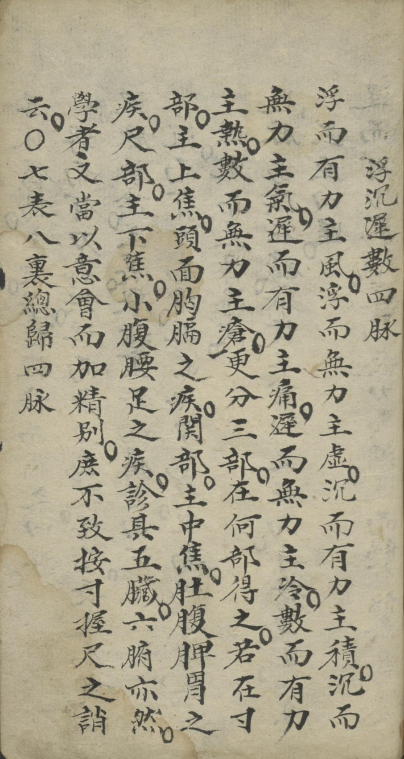 浮沉遲數四脉
浮而有力主風。浮而無力主虛。沉而有力主積。沉而
無力主氣。遲而有力主痛。遲而無力主冷。數而有力
主熱。數而無力主瘡。更分三部。在何部得之。若在寸
部。主上焦。頭面胸膈之疾。関部。主中焦。肚腹脾胃之
疾。尺部。主下焦。小腹腰足之疾。診其五臟。六腑亦然。
學者文當以意會而加精別。庶不致按寸握尺之誚
云。〇七表八裏總歸四脉